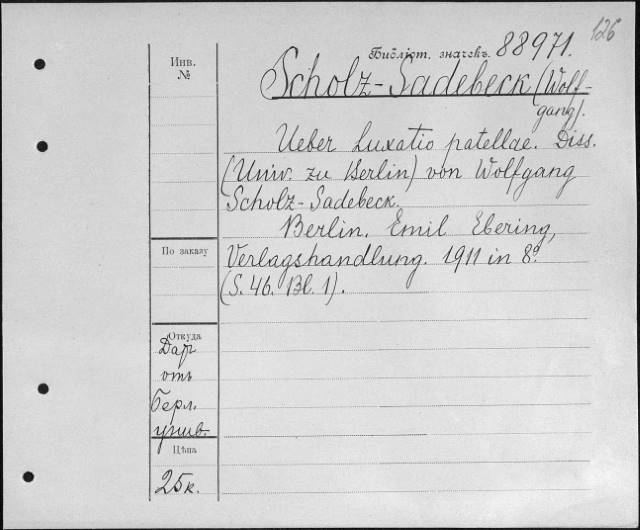 126
Библіот. значекъ. 88971.
Инв.
№
Scholz-Sadebeck (Wolf-
gang).
Ueber Luxatio patellae. Diss.
(Univ. zu Berlin) von Wolfgang
Scholz-Sadebeck.
Berlin. Emil Ebering,
Verlagshandlung. 1911 in 8º.
(S. 46. Bl. 1).
По заказу
Откуда
Дар
отъ
Берл.
унив.
Цѣна
25к.